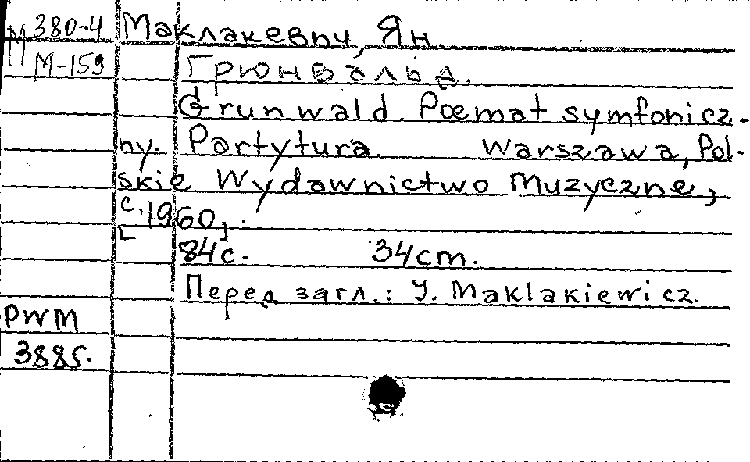 М 380-4
М-159
Маклакевич, Ян.
Грюнвальд.
Grunwald. Poemat symfonicz-
ny. Partytura. Warszawa, Pol-
skie Wydawnictwo Muzyczne,
[с. 1960].
84с. 34cm.
Перед загл.: J. Maklakiewicz.
PWM
3885.